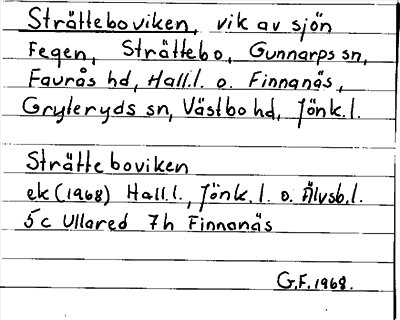 Strätteboviken, vik av sjön
Fegen, Strättebo, Gunnarps sn,
Faurås hd, Hall.l. o. Finnanäs,
Gryteryds sn, Västbo hd, Jönk.l.
Strätteboviken
ek (1968) Hall.l., Jönk.l. o. Älvsb.l.
5c Ullared 7h Finnanäs
G.F. 1968.